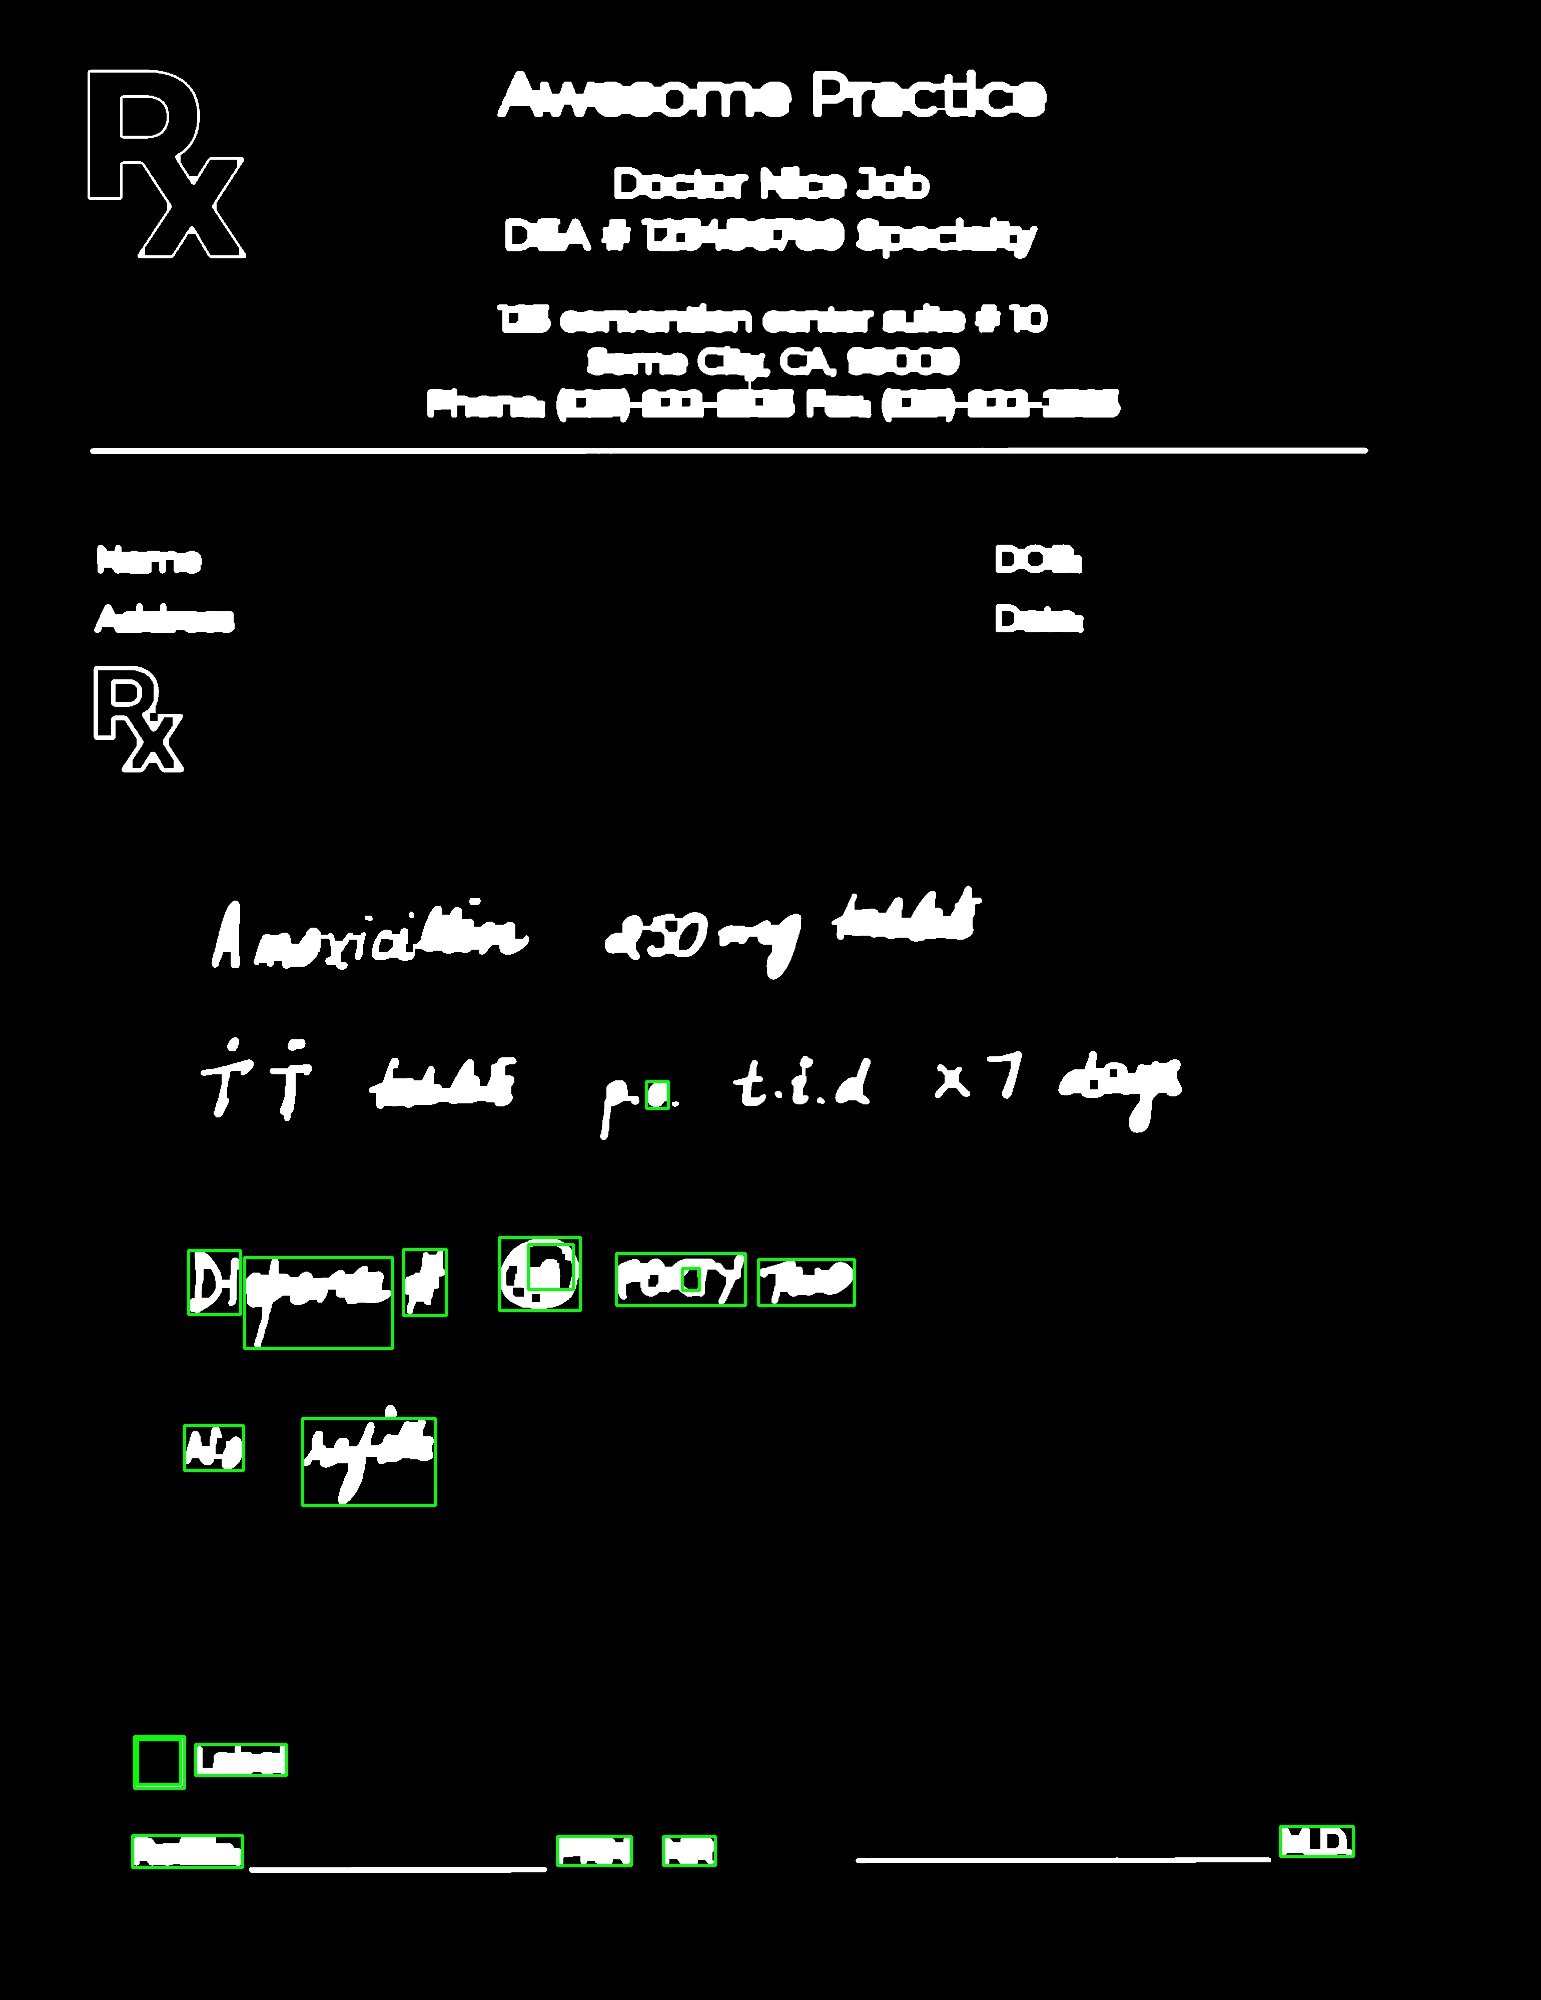 Rx
Awesome Practice
Doctor Nice Job
DEA # Specialty
convention center suite # 10
Some City, CA,
Phone: Fax:
Name
DOB:
Address
Date:
Rx
Amoxicillin 250 mg tablet
T T tablets p.o. t.i.d x 7 days
Dispense # FORTY TWO
No refills
Label
M.D.